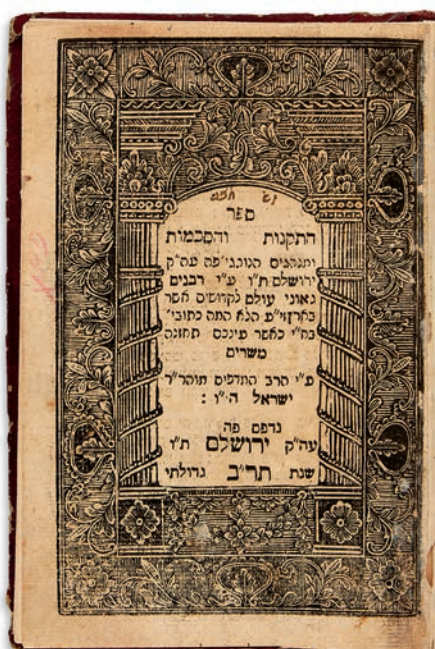 ספר
התקנות והסכמות
ומנהגים הנוהגי׳ פה עה״ק
ירושלם ת״ו ע״י רבנים
גאוני עולם לקדושים אשר
בארץ הי״ע הלא המה כתובי׳
בח״י כאשר עינכם תחזנה
משרים
ע״י הרב המדפיס מוהר״ר
ישראל הי״ו :
נדפס פה
עה״ק ירושלם ת״ו
שנת תר״ב גדולתי